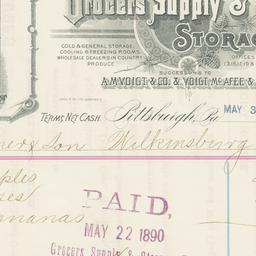 Grocers Supply &
STORAG
COLD & GENERAL STORAGE,
COOLING & FREEZING ROOMS,
WHOLESALE DEALERS IN COUNTRY
PRODUCE
OFFICES
SUCCESSORS TO
A.M.VOIGT & CO. & VOIGT, MCAFEE &
TERMS NET CASH.
Pittsburgh, Pa
MAY 3
& Son Wilkinsburg
ples
ananas
PAID,
MAY 22 1890
Grocers Supply & Stor